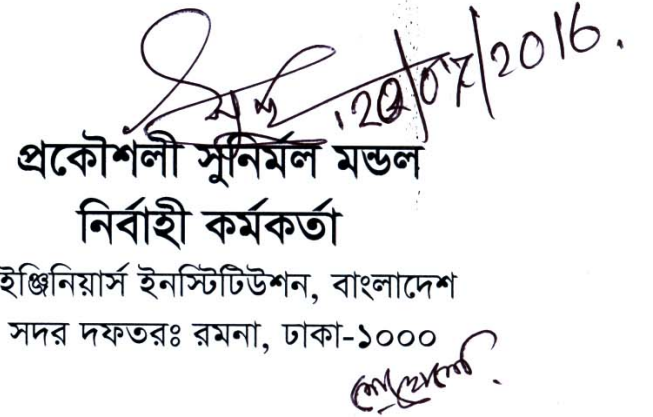 20/07/2016.
প্রকৌশলী সুনির্মল মন্ডল
নির্বাহী কর্মকর্তা
ইঞ্জিনিয়ার্স ইনস্টিটিউশন, বাংলাদেশ
সদর দফতরঃ রমনা, ঢাকা-১০০০